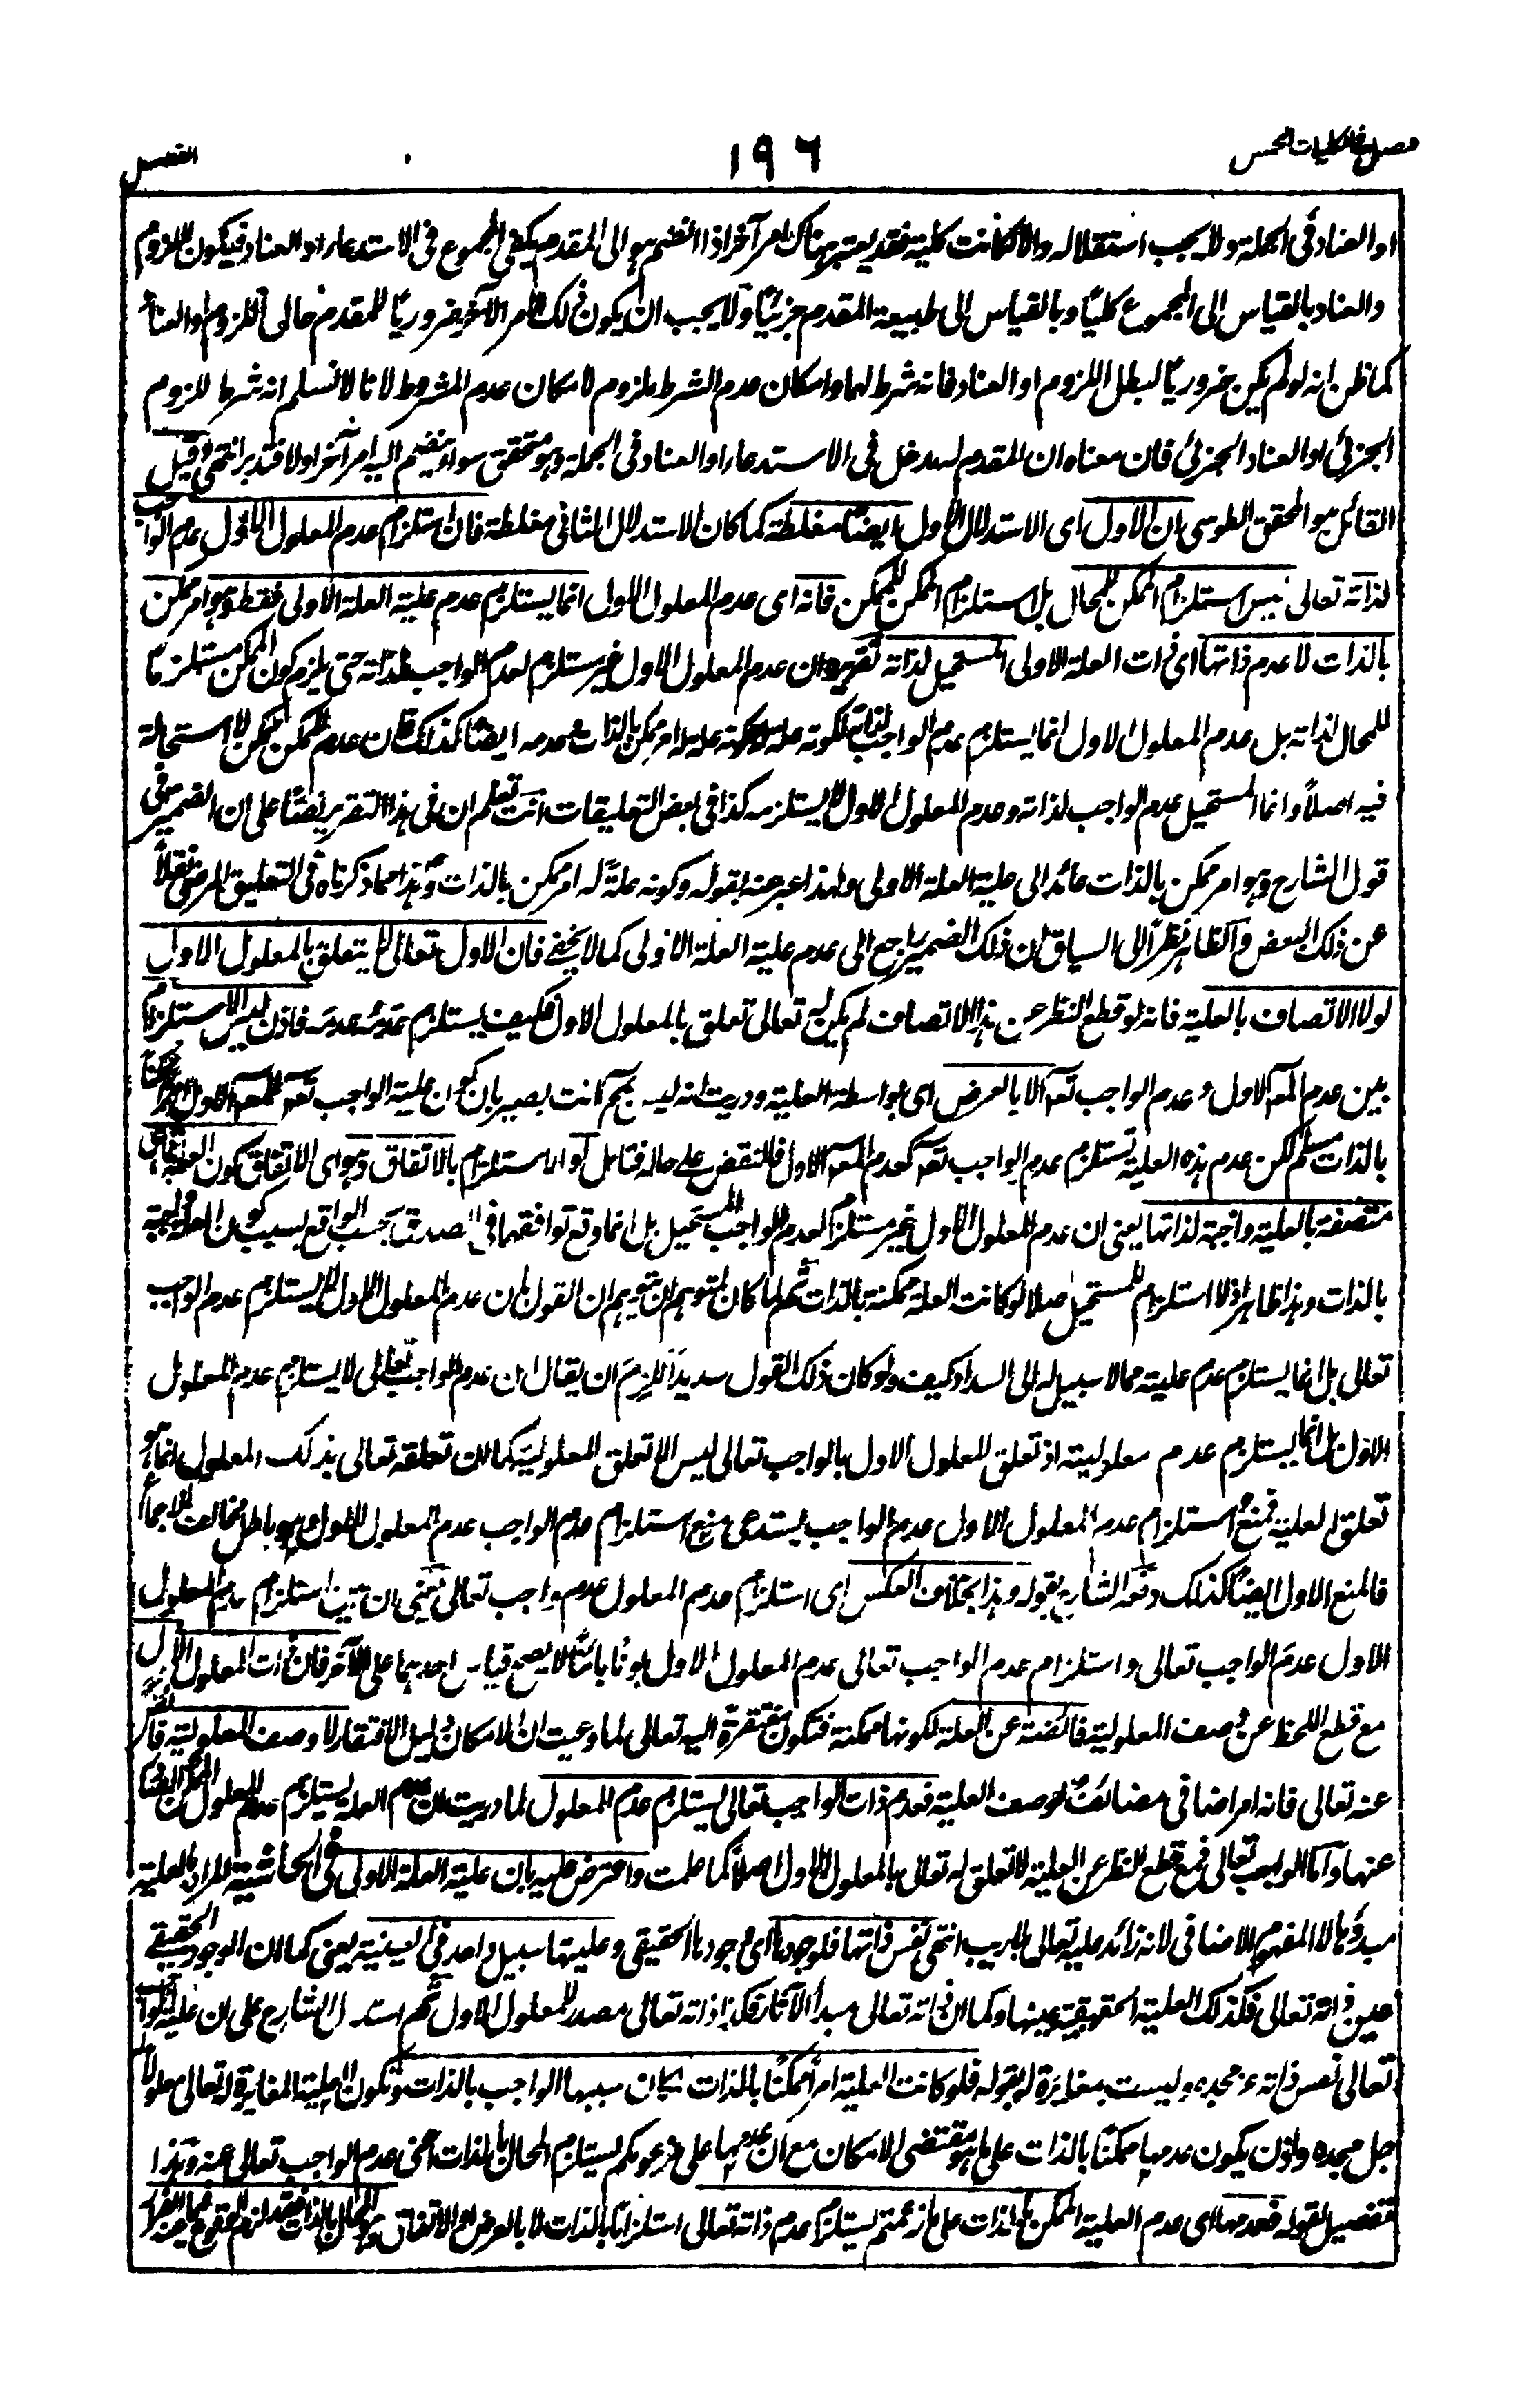 فصل في الكليات الخمس
١٩٦
او العناد فى الجملة ولا يجب استقلاله والا لكانت كلية فقد يعتبر هناك امر آخر اذا انضم هو الى المقدم يكفى المجموع فى الاستدعاء او العناد فيكون اللزوم
والعناد بالقياس الى المجموع كليًا وبالقياس الى طبيعة المقدم جزئيًا ولا يجب ان يكون ذلك الامر الآخر ضروريًا للمقدم حالى اللزوم او العناد
كما ظن انه لو لم يكن ضروريًا لبطل اللزوم او العناد فانه شرط لهما وامكان عدم الشرط ملزوم لامكان عدم المشروط لانا لا نسلم انه شرط للزوم
الجزئى او العناد الجزئى فان معناه ان المقدم له مدخل فى الاستدعاء او العناد فى الجملة وهو متحقق سواء ينضم اليه امر آخر اولا فتدبر انتهى وقيل
القائل هو المحقق الطوسى ان الاول اى الاستدلال الاول ايضًا مغلطة كما كان الاستدلال الثانى مغلطة فان استلزام عدم المعلول الاول عدم الواجب
لذاته تعالى ليس استلزام الممكن للمحال بل استلزام الممكن للممكن فانه اى عدم المعلول الاول انما يستلزم عدم علية العلة الاولى فقط وهو امر ممكن
بالذات لا عدم ذاتها اى ذات العلة الاولى المستحيل لذاته تقريره ان عدم المعلول الاول غير مستلزم لعدم الواجب لذاته حتى يلزم كون الممكن مستلزمًا
للمحال لذاته بل عدم المعلول الاول انما يستلزم عدم الواجب لكونه علة له وكونه علة له امر ممكن بالذات فعدمه ايضًا كذلك فان عدم الممكن ممكن لا استحالة
فيه اصلًا وانما المستحيل عدم الواجب لذاته وعدم المعلول الاول لا يستلزمه كذا فى بعض التعليقات انت تعلم ان فى هذا التقرير نصًا على ان الضمير فى
قول الشارح وهو امر ممكن بالذات عائد الى علية العلة الاولى ولهذا عبر عنه بقوله وكونه علة له امر ممكن بالذات وهذا مما ذكرناه فى التعليق المرضى نقلًا
عن ذلك البعض والظاهر نظرًا الى السياق ان ذلك الضمير راجع الى عدم علية العلة الاولى كما لا يخفى فان الاول تعالى لا يتعلق بالمعلول الاول
لولا الاتصاف بالعلية فانه لو قطع النظر عن هذا الاتصاف لم يكن له تعالى تعلق بالمعلول الاول فكيف يستلزم عدمه عدمه فاذن ليس الاستلزام
بين عدم المعـ الاول وعدم الواجب تعـ الا بالعرض اى بواسطة العلية ودريت انه ليس انت بصير بان كون علية الواجب تعـ للمعـ الاول
بالذات مسلم لكن عدم هذه العلية تستلزم عدم الواجب تعـ كعدم المعـ الاول فالنقض على حاله فتامل او الاستلزام بالاتفاق وهو اى الاتفاق كون العلة
متصفة بالعلية واجبة لذاتها يعنى ان عدم المعلول الاول غير مستلزم لعدم الواجب المستحيل بل انما وقع توافقهما فى الصدق بحسب الواقع بسبب كون العلة واجبة
بالذات وهذا ظاهر اذ لا استلزام للمستحيل اصلا لو كانت العلة ممكنة بالذات ثم لما كان لمتوهم ان يتوهم ان القول بان عدم المعلول الاول لا يستلزم عدم الواجب
تعالى بل انما يستلزم عدم عليته مما لا سبيل له الى السداد كيف ولو كان ذلك القول سديدًا للزم ان يقال ان عدم الواجب تعالى لا يستلزم عدم المعلول
الاول بل انما يستلزم عدم معلوليته اذ تعلق المعلول الاول بالواجب تعالى ليس الا تعلق المعلولية كما ان تعلقه تعالى بذلك المعلول انما هو
تعلق العلية فمنع استلزام عدم المعلول الاول عدم الواجب يستدعى منع استلزام عدم الواجب عدم المعلول الاول وهو باطل مخالف للاجماع
فالمنع الاول ايضًا كذلك دفعه الشارح بقوله وهذا بخلاف العكس اى استلزام عدم المعلول عدم واجب تعالى يعنى ان بين استلزام عدم المعلول
الاول عدم الواجب تعالى واستلزام عدم الواجب تعالى عدم المعلول الاول بونًا بائنًا لا يصح قياس احدهما على الآخر فان ذات المعلول الاول
مع قطع اللحظ عن وصف المعلولية فائضة عن العلة لكونها ممكنة فتكون مفتقرة اليه تعالى لما وعيت ان الامكان دليل الافتقار لا وصف المعلولية
عنه تعالى فانه امر اضافى مضائف لوصف العلية فعدم ذات الواجب تعالى يستلزم عدم المعلول لما دريت ان عدم العلة يستلزم عدم المعلول
عنها واما الواجب تعالى فمع قطع النظر عن العلية لا تعلق له تعالى بالمعلول الاول اصلًا كما علمت واعترض عليه بان علية العلة الاولى فى الحاشية المراد بالعلية
مبدؤها لا المفهوم الاضافى لانه زائد عليه تعالى بلا ريب انتهى نفس ذاتها فلوجودها اى موجودها الحقيقى وعليتها سبيل واحد فى العينية يعنى كما ان الوجود الحقيقى
عين ذاته تعالى فكذلك العلية الحقيقية عينها وكما ان ذاته تعالى مبدأ الآثار فكذا ذاته تعالى مصدر للمعلول الاول ثم استدل الشارح على ان علية الواجب
تعالى نفس ذاته عز مجده وليست بمغايرة له بقوله فلو كانت العلية امرًا ممكنًا بالذات لكان سببها الواجب بالذات وتكون العلية المغايرة له تعالى معلولًا
جل مجده واذن يكون عدمها ممكنًا بالذات على ما هو مقتضى الامكان مع ان عدمها على مزعومكم يستلزم المحال بالذات اعنى عدم الواجب تعالى عنه وهذا
تفصيل لقوله فعدمها اى عدم العلية الممكن بالذات على ما زعمتم يستلزم عدم ذاته تعالى استلزامًا بالذات لا بالعرض او الاتفاق وهو المحال بالذات